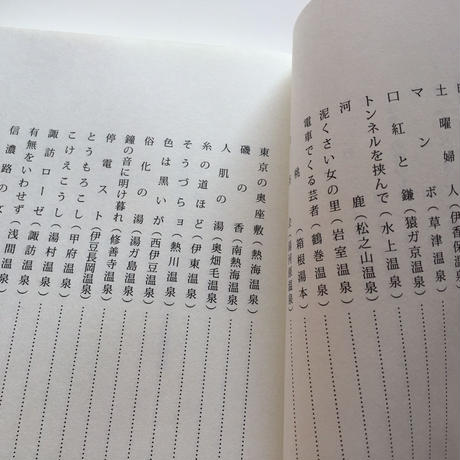 土曜婦人(伊香保温泉)
マンボ(草津温泉)
口紅と鎌(猿ガ京温泉)
トンネルを挟んで(水上温泉)
河鹿(松之山温泉)
泥くさい女の里(岩室温泉)
電車でくる芸者(鶴巻温泉)
(箱根湯本)
東京の奥座敷(熱海温泉)
磯の香(南熱海温泉)
人肌の湯(奥畑毛温泉)
糸の道ほど(伊東温泉)
そうづらョ(熱川温泉)
色は黒いが(西伊豆温泉)
俗化の湯(湯ガ島温泉)
鐘の音に明け暮れ(修善寺温泉)
停電スト(伊豆長岡温泉)
とうもろこし(甲府温泉)
こけえこうし(湯村温泉)
諏訪ローゼ(諏訪温泉)
有無をいわせず(浅間温泉)
信濃路の女